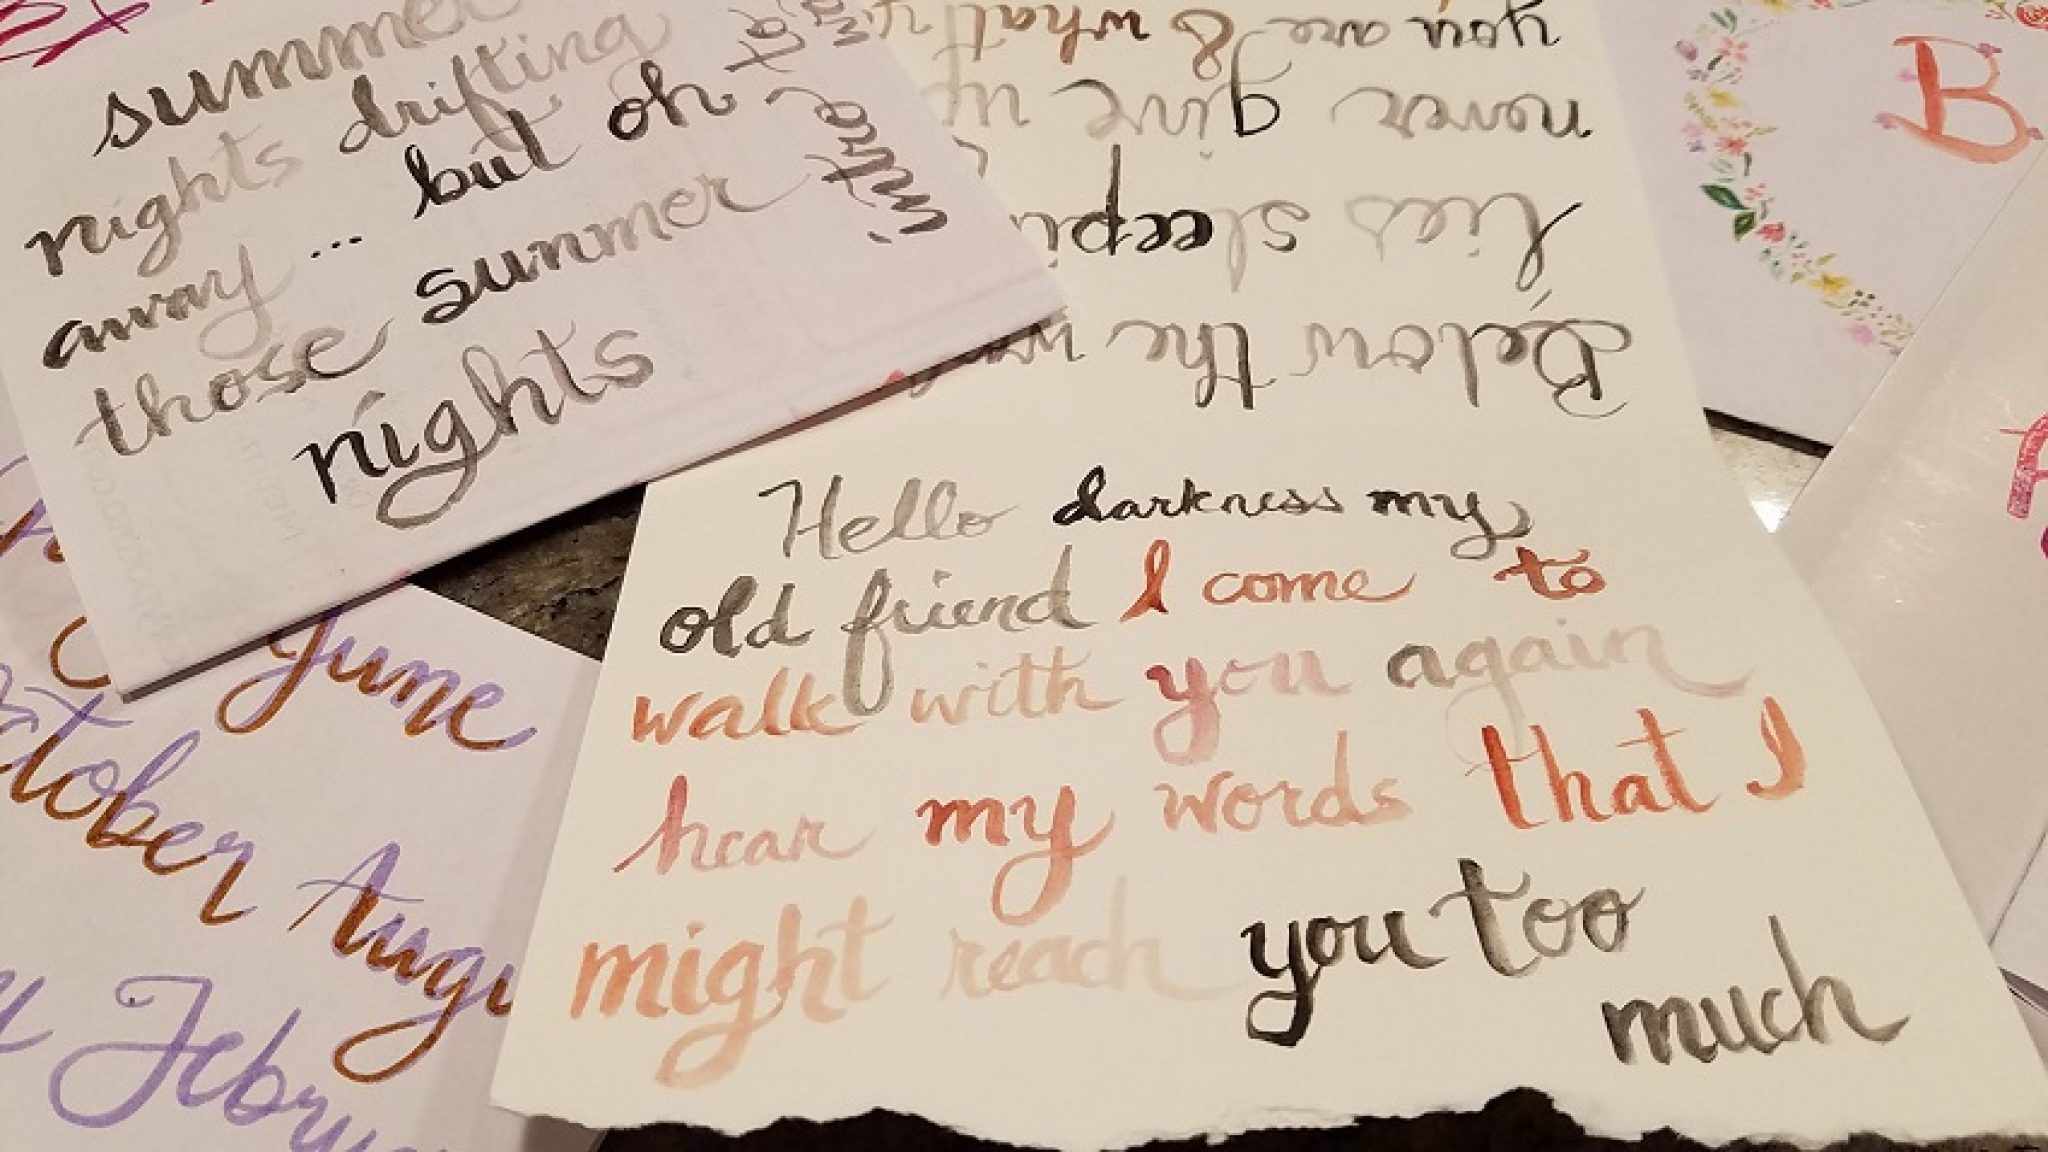 summer
nights drifting
away ... but oh
those summer
nights
into
you are & what
never give up
lies sleepin
Below the
B
Hello darkness my
old friend I come to
walk with you again
hear my words that I
might reach you too
much
June
October Augu
Februa